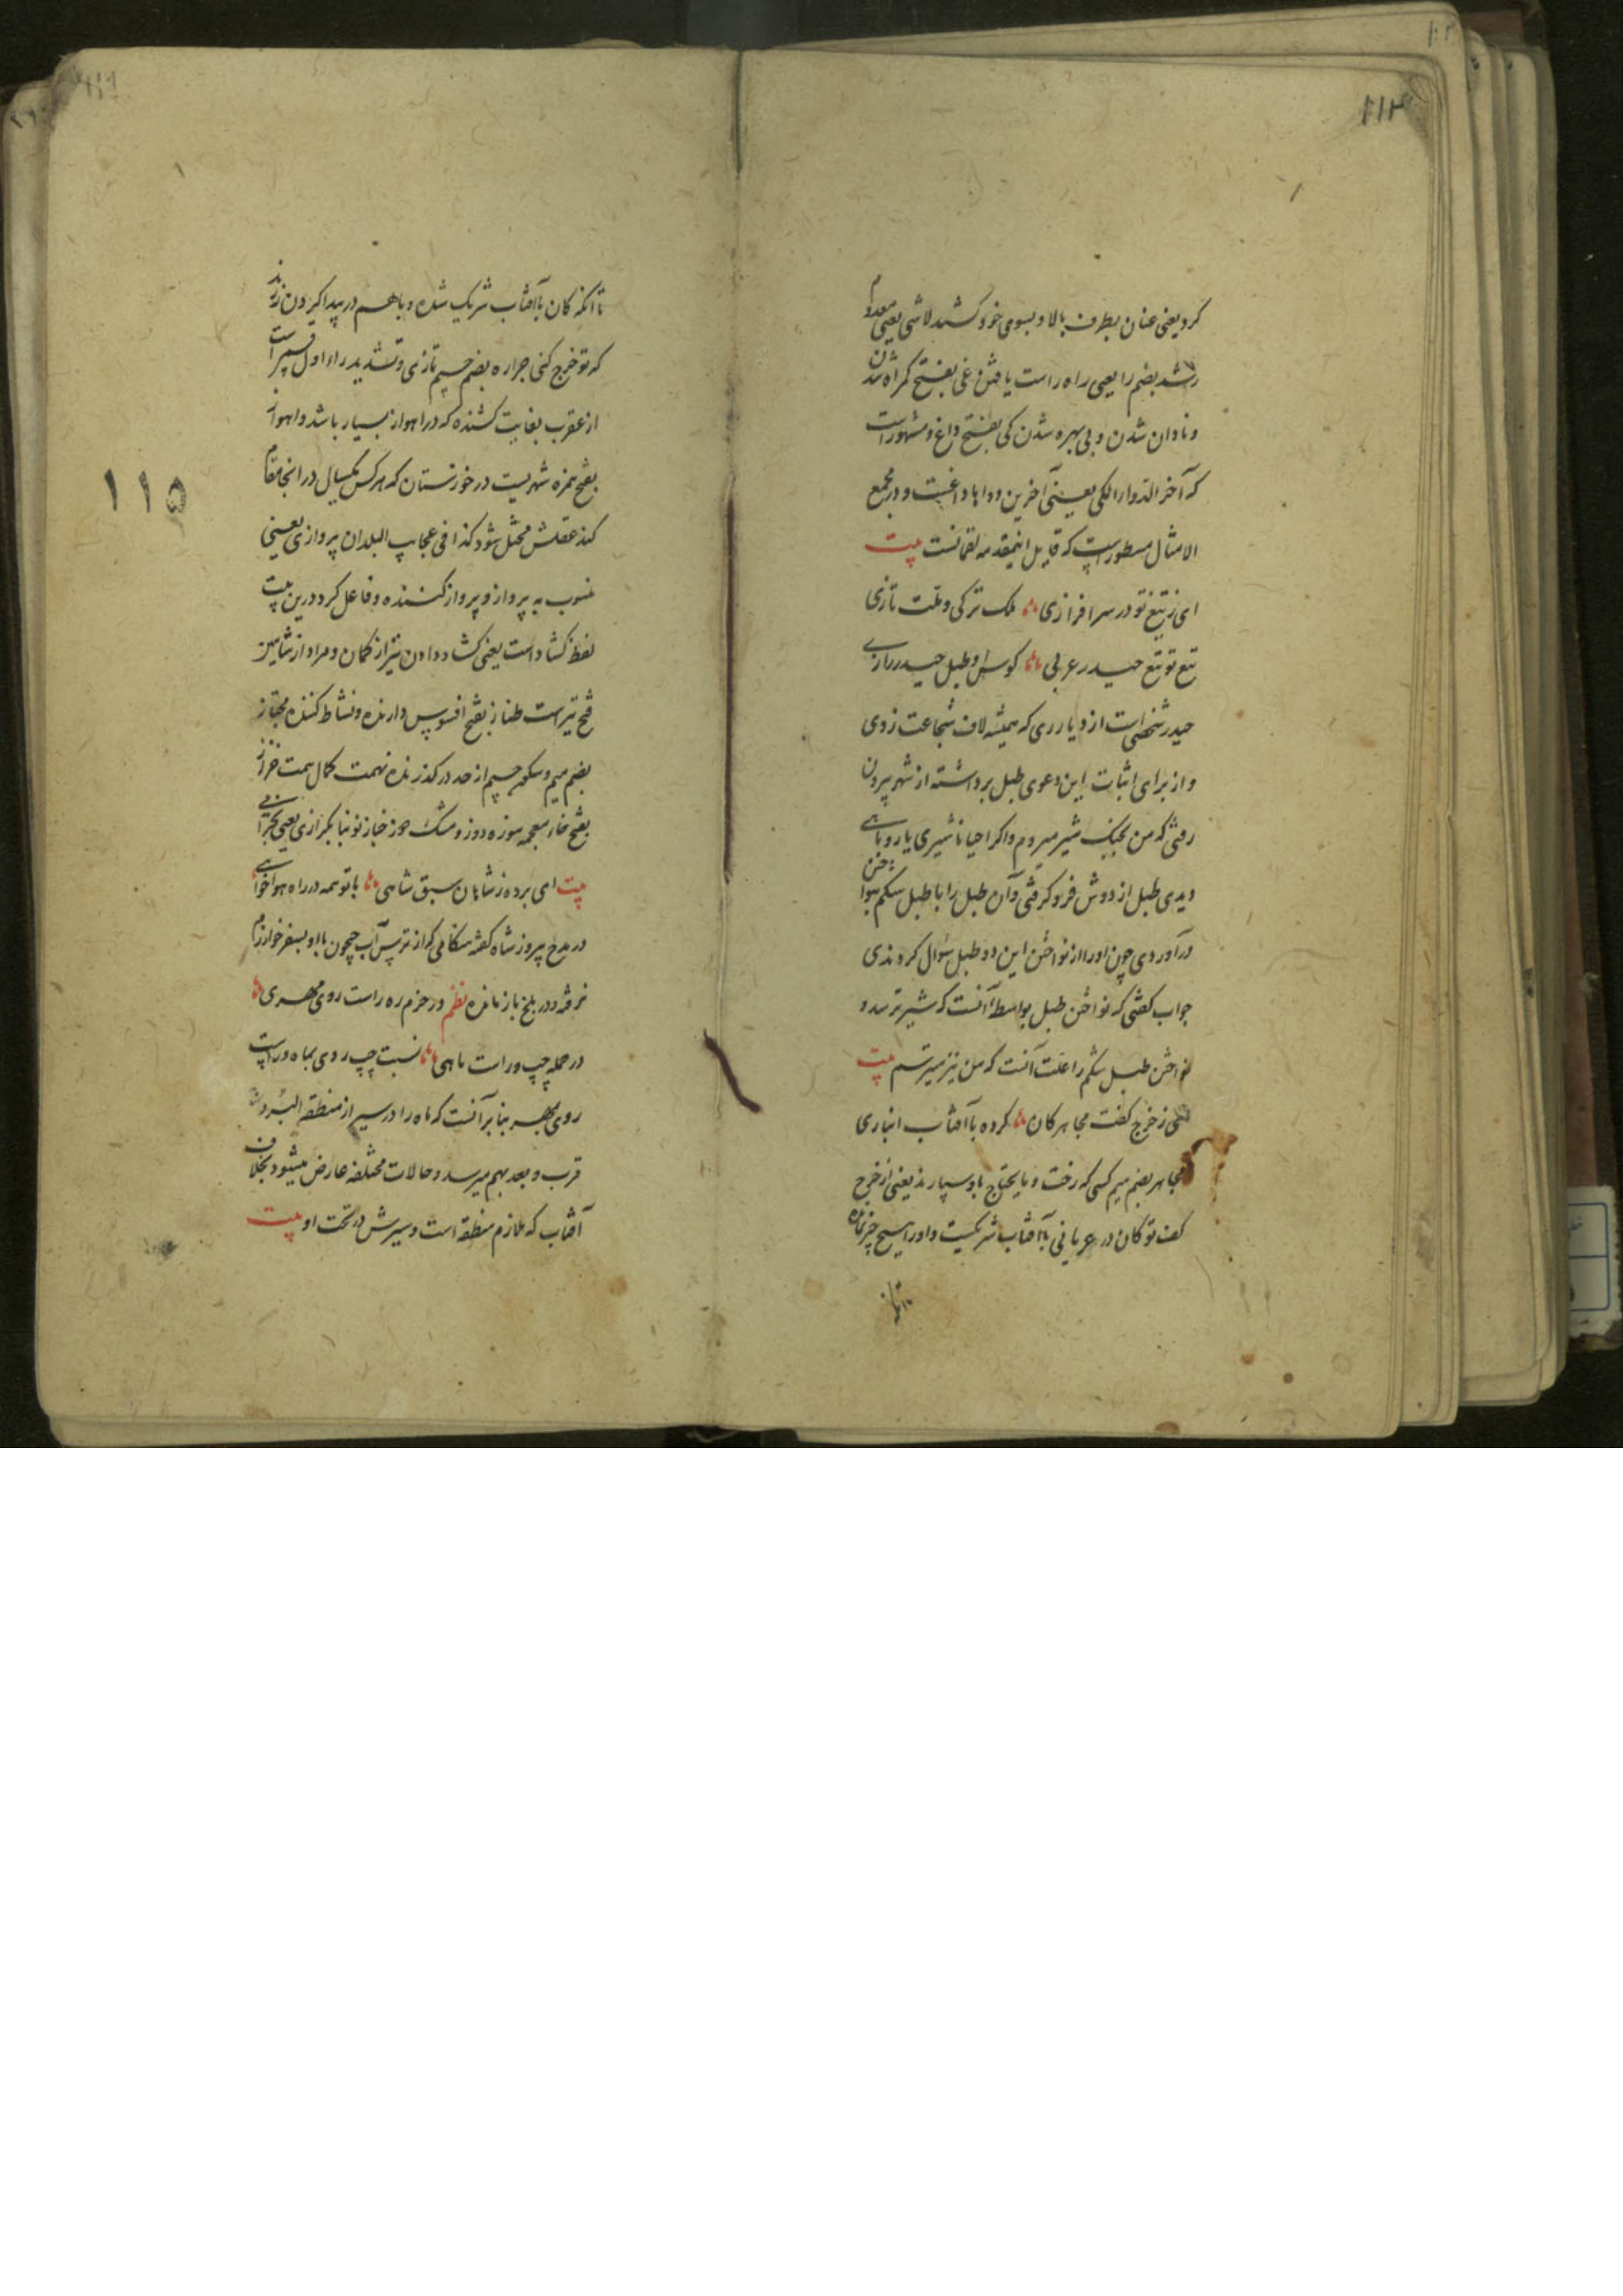 ۱۱۴
کرد یعنی عنان بطرف بالا و بسوی خود کشید لاشی یعنی معدوم
رشد بضم را یعنی راه راست یافتن و غی بفتح گمراه شدن
و نادان شدن و بی بهره شدن کی بفتح داغ و مشهور است
که آخر الدوا الکی یعنی آخرین دواها داغست و در مجمع
الامثال مسطور است که قایل اینمقدمه لقمانست بیت
ای ز تیغ تو در سرافرازی ملک ترکی و ملت تازی
تیغ تو تیغ حیدر عربی کوس او طبل حیدر رازی
حیدر شخصی است از دیار ری که همیشه لاف شجاعت زدی
و از برای اثبات این دعوی طبل برداشته از شهر بیرون
رفتی که من بجنگ شیر میروم و اگر احیانا شیری یا روباهی
دیدی طبل از دوش فرو گرفتی و آن طبل را با طبل شکم بنواختن
درآوردی چون او را از نواختن این دو طبل سؤال کردندی
جواب گفتی که نواختن طبل بواسطه آنست که شیر ترسد و
نواختن طبل شکم را علت آنست که من نیز میترسم بیت
ز خرج کفت مجاهر کان کرده با آفتاب انبازی
مجاهر بضم میم کسی که رخت و مایحتاج باو سپارند یعنی از خرج
کف تو کان در عریانی با آفتاب شریکست و او را هیچ چیز نمانده
تا آنکه کان با آفتاب شریک شده و با هم در پیدا کردن زرند
که تو خرج کنی جراره بضم جیم تازی و تشدید راء اول قسمی است
از عقرب بغایت کشنده که در اهواز بسیار باشد و اهواز
بفتح همزه شهریست در خوزستان که هر کس یکسال در آنجا مقام
کند عقلش مختل شود کذا فی عجایب البلدان پروازی یعنی
منسوب به پرواز و پرواز کننده و فاعل کرد درین بیت
لفظ گشاد است یعنی گشاد دادن تیر از کمان و مراد از شاهین
فتح تیر است طناز بفتح افسوس دارنده و نشاط کننده مجتاز
بضم میم و سکون جیم از حد درگذرنده نهمت کمال همت خراز
بفتح خاء معجمه موزه دوز و مشک دوز خباز نونبا بکرازی یعنی
بیت ای برده ز شاهان سبق شاهی با تو همه در راه هواخواهی
در مدح پیروز شاه گفته هنگامی که از ترس آب جیحون با او بسفر خوارزم
نرفته و در بلخ باز مانده نظم در حزم ره راست روی مهری
در حمله چپ و راست ماهی نسبت چپ روی بماه و راست
روی بمهر بنا بر آنست که ماه را در سیر از منطقة البروج
قرب و بعد بهم میرسد و حالات مختلفه عارض میشود بخلاف
آفتاب که ملازم منطقه است و سیرش در تحت او بیت
۱۱۵